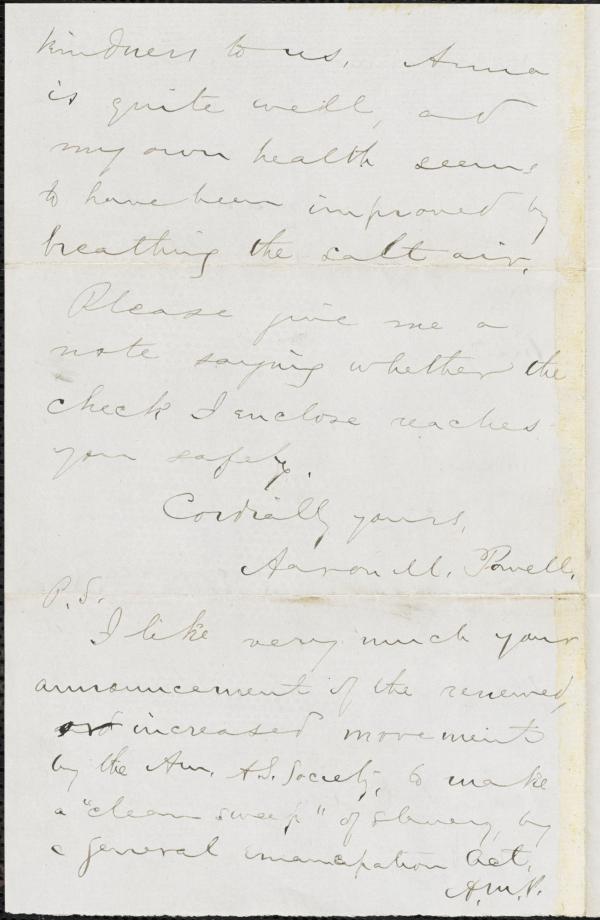 kindness to us. Anna
is quite well, and
my own health seems
to have been improved by
breathing the salt air.
Please give me a
note saying whether the
check I enclose reaches
you safely.
Cordially yours,
Aaron M. Powell.
P.S.
I like very much your
announcement of the renewed,
and increased movement
by the Am. A.S. Society, to make
a "clean sweep" of slavery, by
a general emancipation act.
A.M.P.